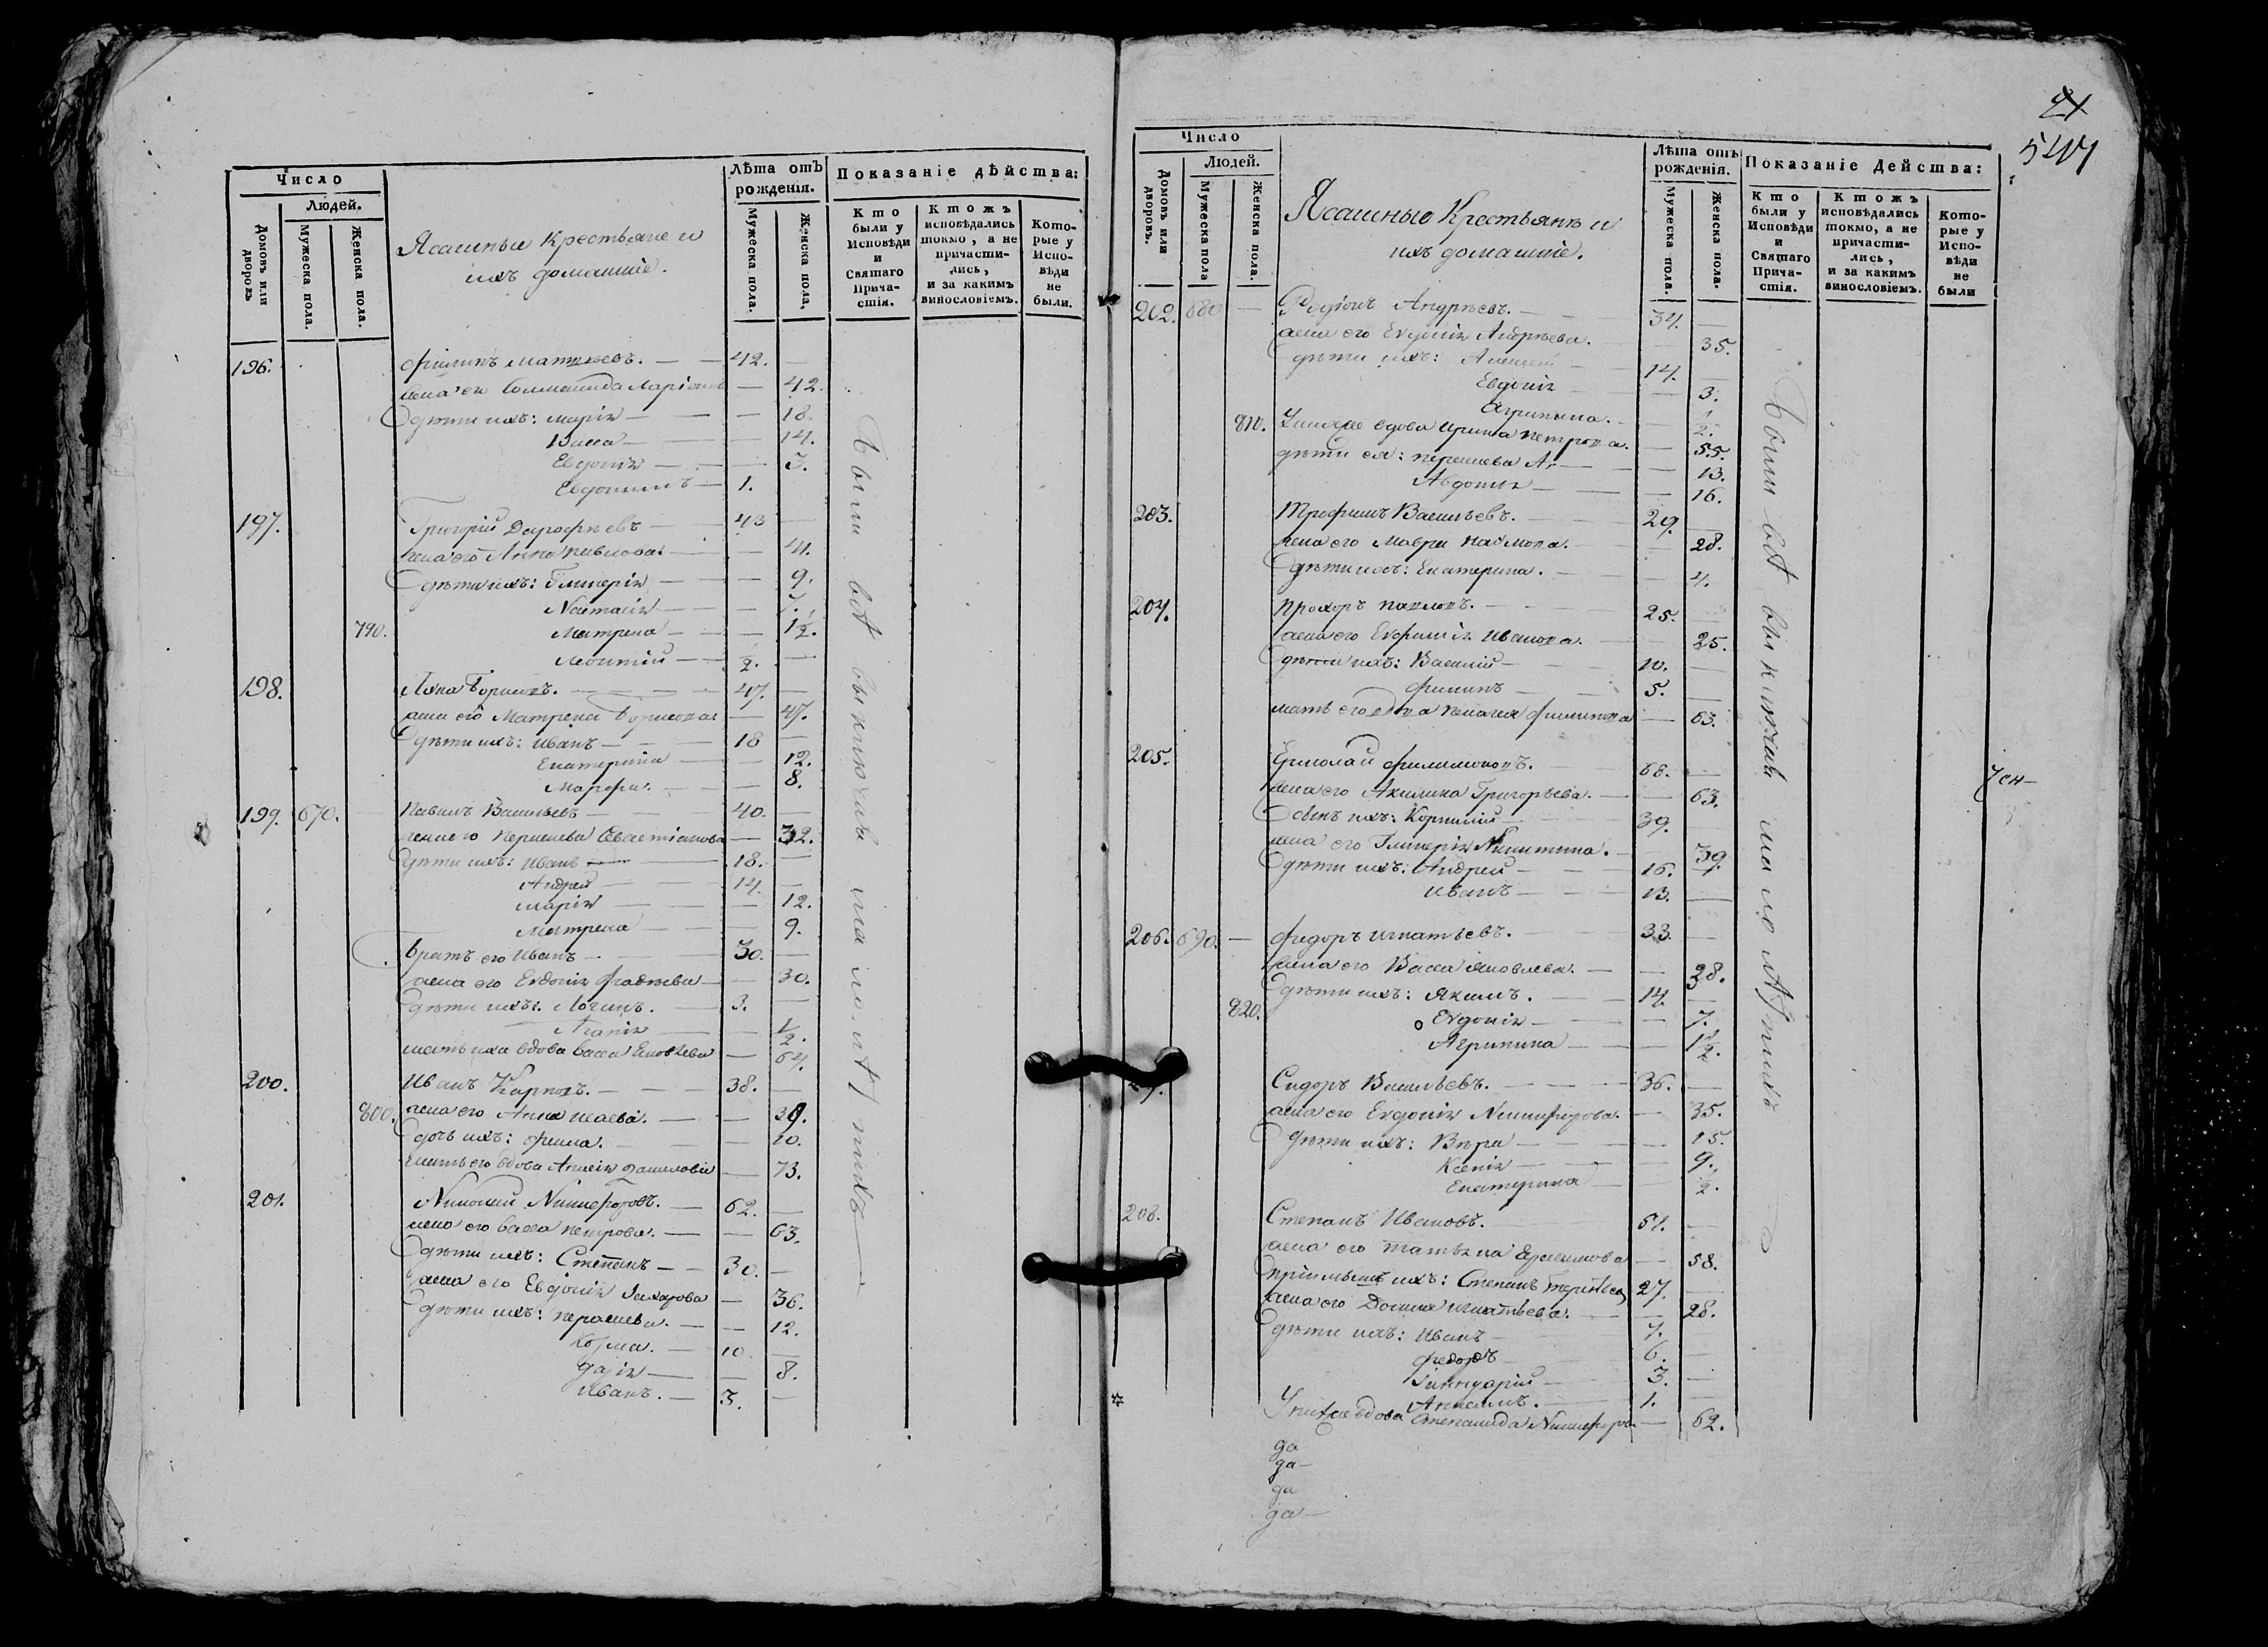 Число
Людей.
Домовъ или дворовъ
Мужеска пола.
Женска пола.
Ясашныя Крестьяне и
ихъ домашніе.
Лѣта отъ рожденія.
Мужеска пола.
Женска пола.
Показаніе дѣйства:
Кто были у Исповѣди и Святаго Прича-стія.
Ктожъ исповѣдались токмо, а не причасти-лись, и за какимъ винословіемъ.
Кото-рые у Испо-вѣди не были.
196. Филипъ Матвѣевъ. 42.
жена его 42.
дѣти ихъ: Марія 18.
Васса 14.
Евдокія 3.
Евдокимъ 1.
197. Григорій Дорофѣевъ 43
жена его Анна Павлова 41.
дѣти ихъ: Гликерія 9.
Настасія 7.
790. Матрена 1 1/2.
Леонтій 1/2.
198. Лука Борисовъ. 47.
жена его Матрена Борисова 47.
дѣти ихъ: Иванъ 18
Екатерина 12.
Марфа 8.
199. 670. Павилъ Васильевъ 40.
жена его Перасковья Севастіанова 32.
дѣти ихъ: Иванъ 18.
Андрей 14.
Марія 12.
Матрена 9.
братъ его Иванъ 30.
жена его Евдокія Фадѣева 30.
дѣти ихъ: Логинъ. 3.
Агапія 1/2.
мать ихъ вдова Васса Яковлева 64.
200. Иванъ Карповъ. 38.
800. жена его Анна Исаева. 39.
дочь ихъ: Фекла. 10.
мать его вдова Анисія Данилова 73.
201. Николай Никифоровъ. 62.
жена его Васса Петрова. 63.
дѣти ихъ: Степанъ 30.
жена его Евдокія Захарова 36.
дѣти ихъ: Перасковья. 12.
Козма. 10.
Дарія 8.
Иванъ. 3.
были всѣ выключая малолѣтнихъ
21
544
Число
Людей.
Домовъ или дворовъ.
Мужеска пола
Женска пола.
Ясашныя Крестьянѣ и
ихъ домашніе.
Лѣта отъ рожденія.
Мужеска пола.
Женска пола.
Показаніе Действа:
Кто были у Исповѣди и Святаго Прича-стія.
Ктожъ исповѣдались токмо, а не причасти-лись, и за какимъ винословіемъ.
Кото-рые у Испо-вѣди не были
202. 680 Родіонъ Андрѣевъ. 34.
жена его Евдокія Андрѣева. 35.
дѣти ихъ: Алексей 14.
Евдокія 3.
Агрипина. 1/2.
810. вдова Ирина Петрова. 55.
дѣти ея: 13.
Авдотья 16.
203. Трофимъ Васильевъ. 29.
жена его Мавра Наумова. 28.
дѣти ихъ: Екатерина. 4.
204. Прохоръ Павловъ. 25.
жена его Евфимія Иванова. 25.
дѣти ихъ: Василій 10.
Филипъ 5.
мать его вдова Пелагея Филипова 63.
205. Ермолай Филимоновъ. 68.
жена его Акилина Григорьева. 63.
сынъ ихъ: Корнилій 39.
жена его Гликерія Никитина. 39.
дѣти ихъ: Андрей 16.
Иванъ 13.
206. 690. Федоръ Игнатьевъ. 33.
жена его Васса Яковлева. 28.
дѣти ихъ: Якимъ. 14.
820. Евдокія 7.
Агрипина 1 1/2.
Сидоръ Васильевъ. 36.
жена его Евдокія Никифорова. 35.
дѣти ихъ: Вѣра 15.
Ксенія 9.
Екатерина 1/2.
208. Степанъ Ивановъ. 51.
жена его Татьяна 58.
пріимышъ ихъ: Степанъ 27.
жена его Домна Игнатьева. 28.
дѣти ихъ: Иванъ 7.
Федоръ 6.
3.
1.
вдова Степанида Никифорова 62.
да
да
да
да
были всѣ выключая малолѣтнихъ